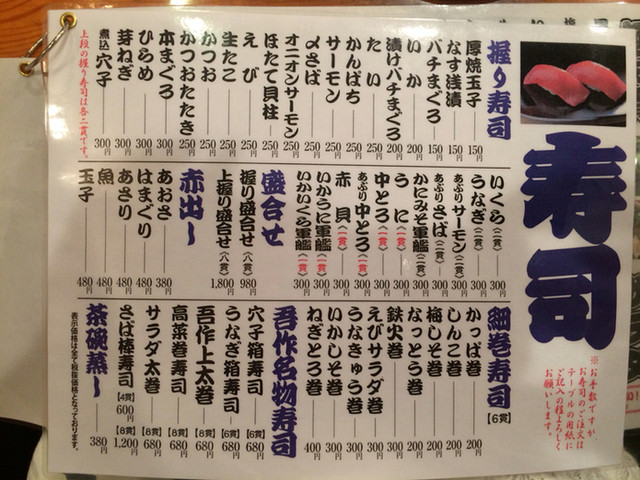 寿司
※お手数ですが、
お寿司のご注文は
テーブルの用紙に
ご記入の程よろしく
お願いします。
握り寿司
厚焼玉子 150円
なす浅漬 150円
バチまぐろ 150円
いか 200円
漬けバチまぐろ 200円
たい 250円
かんぱち 250円
サーモン 250円
〆さば 250円
オニオンサーモン 250円
ほたて貝柱 250円
えび 250円
生たこ 250円
かつお 250円
かつおたたき 250円
本まぐろ 300円
ひらめ 300円
芽ねぎ 300円
煮込穴子 300円
上段の握り寿司は各二貫です。
いくら(二貫) 300円
うなぎ(二貫) 300円
あぶりサーモン(二貫) 300円
あぶりさば(二貫) 300円
かにみそ軍艦(二貫) 300円
うに(一貫) 300円
中とろ(一貫) 300円
あぶり中とろ(一貫) 300円
赤貝(一貫) 300円
いかうに軍艦(一貫) 300円
いかいくら軍艦(一貫) 300円
盛合せ
握り盛合せ(八貫) 980円
上握り盛合せ(八貫) 1,800円
赤出〜
あおさ 380円
はまぐり 480円
あさり 480円
魚 480円
玉子 480円
細巻寿司【6貫】
かっぱ巻 200円
しんこ巻 200円
梅しそ巻 200円
なっとう巻 200円
鉄火巻 200円
えびサラダ巻 300円
うなきゅう巻 300円
いかしそ巻 300円
ねぎとろ巻 400円
吾作名物寿司
穴子箱寿司【6貫】680円
うなぎ箱寿司【6貫】680円
吾作上太巻【8貫】680円
高菜巻寿司【8貫】680円
サラダ太巻【8貫】680円
さば棒寿司【4貫】600円【8貫】1,200円
茶碗蒸〜 380円
表示価格は全て税抜価格となっております。